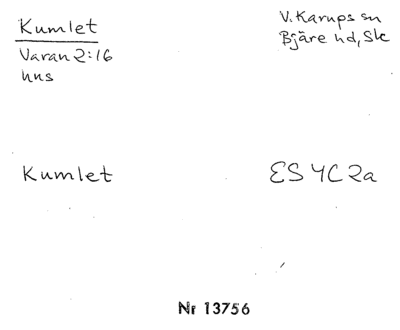 Kumlet
Varan 2:16
hns
V. Karups sn
Bjäre hd, Sk
Kumlet
ES 4C2a
Nr 13756